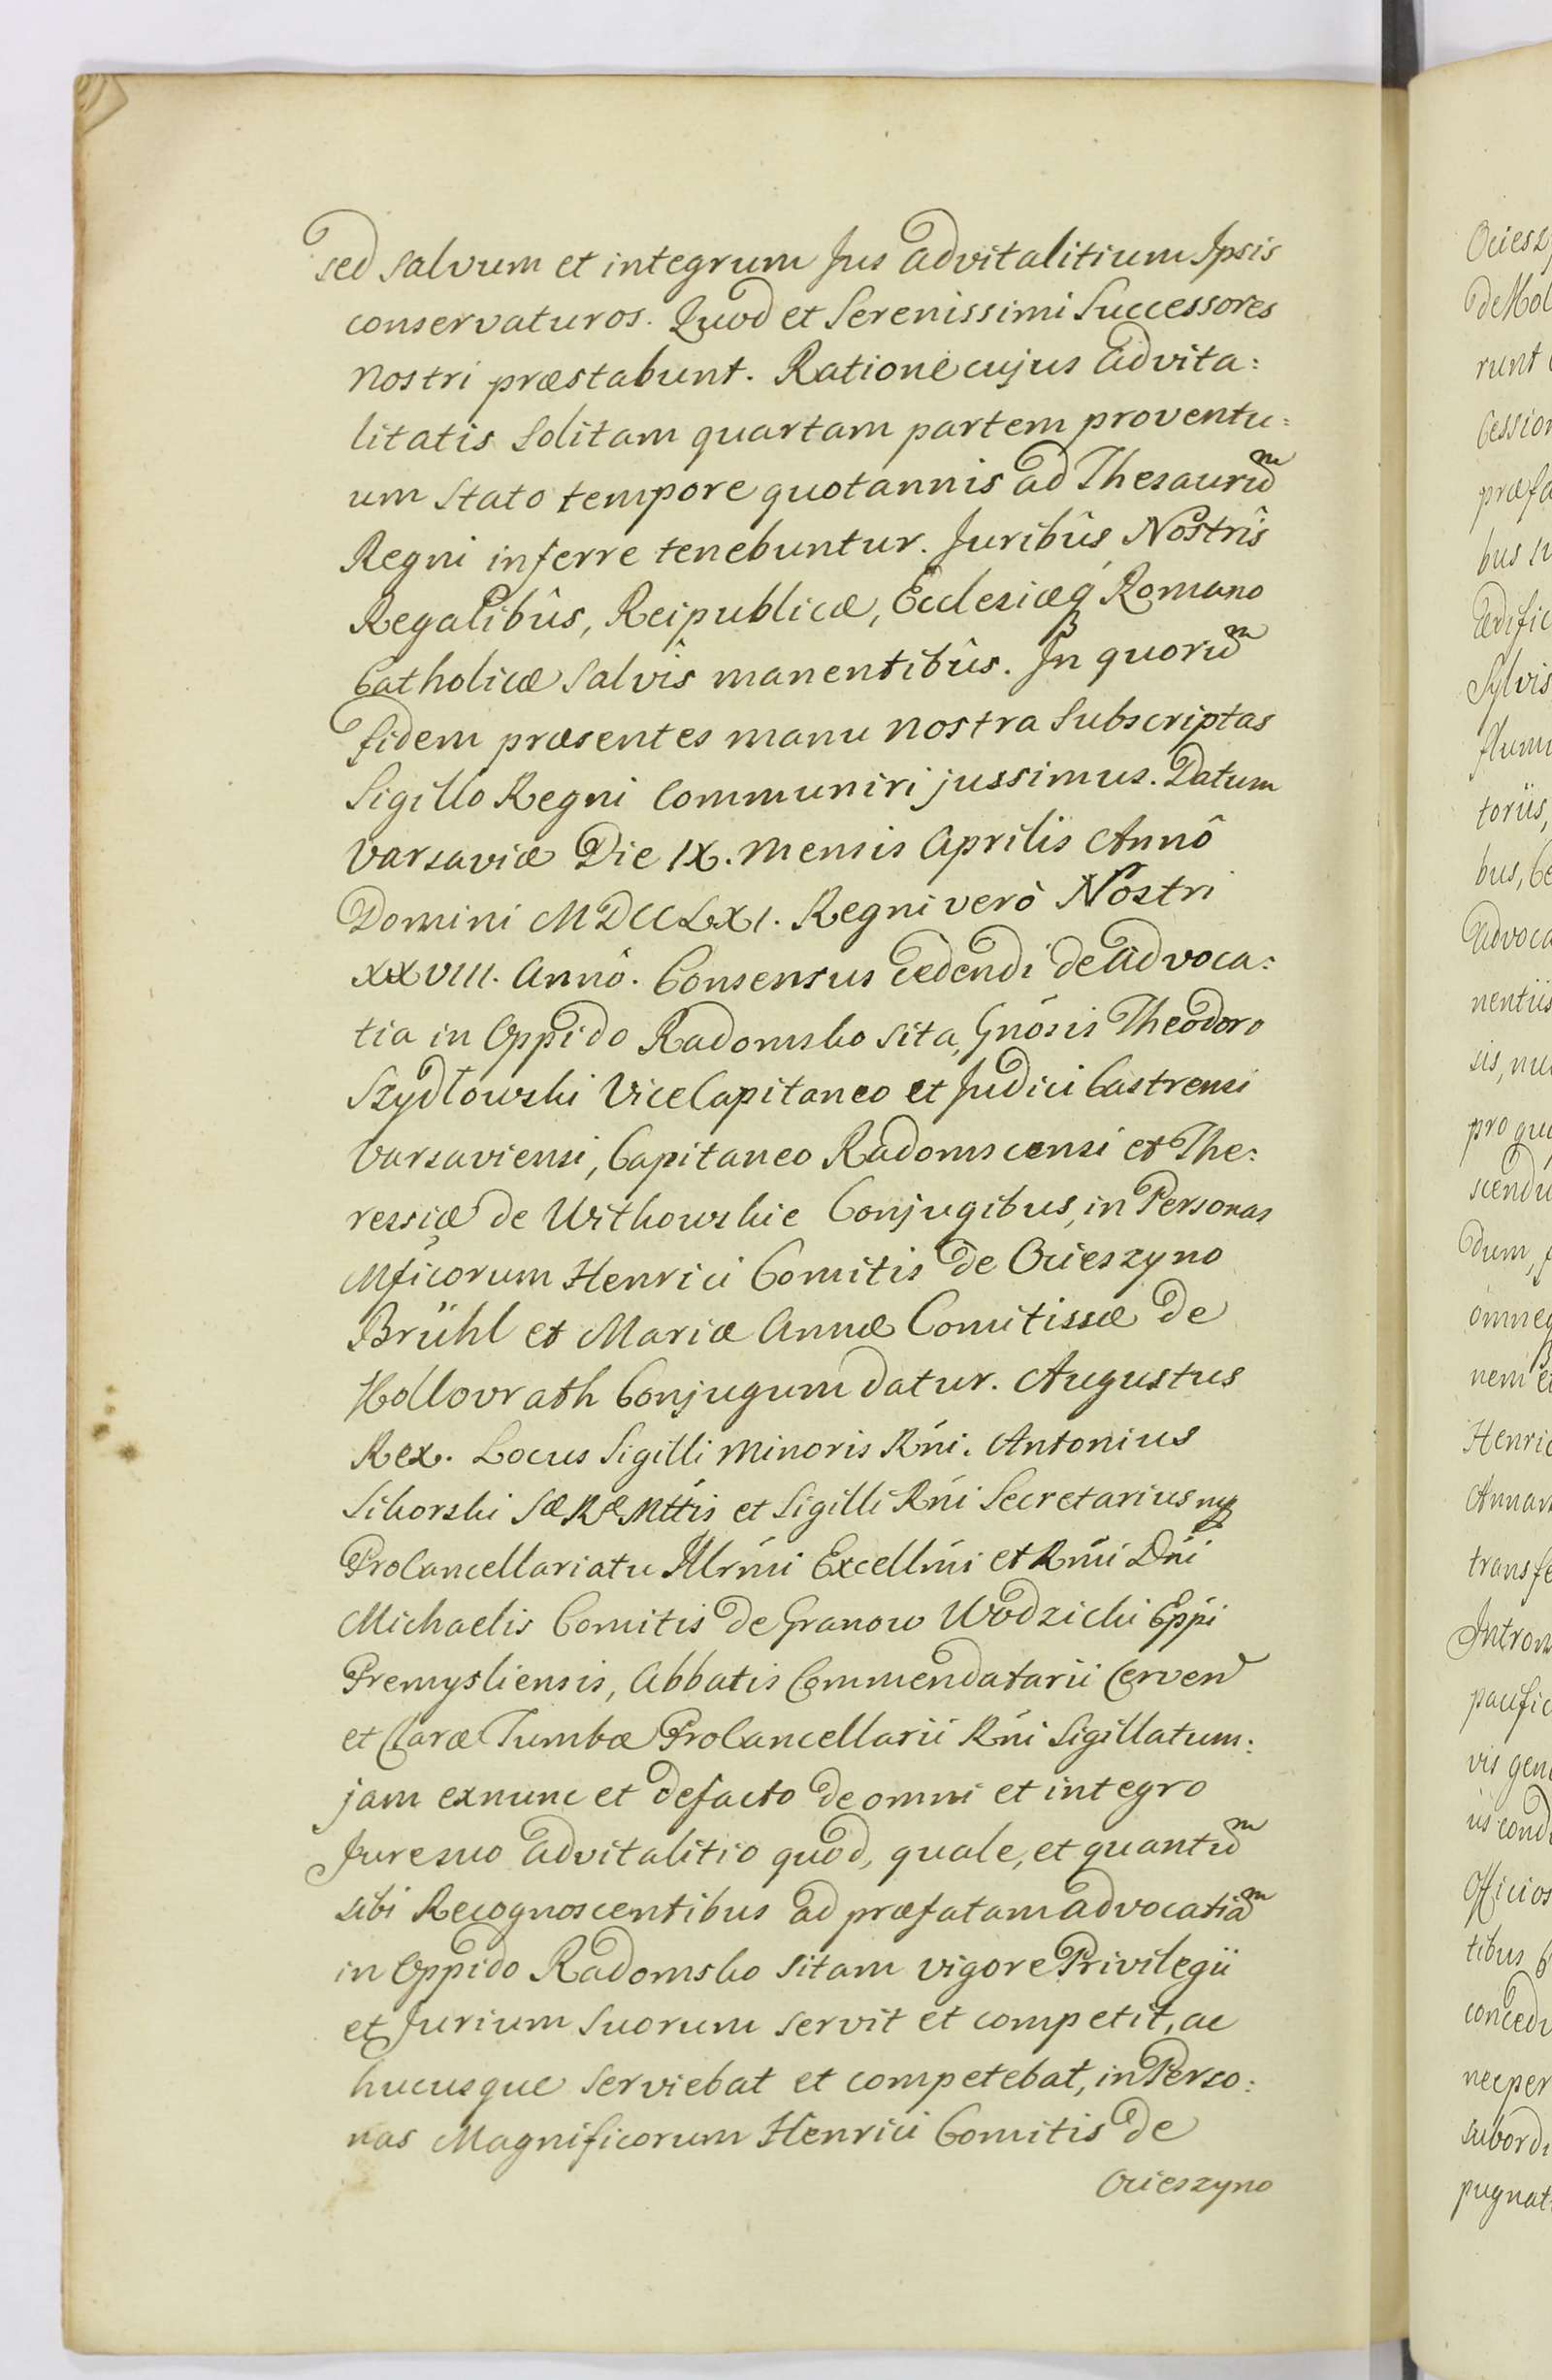 sed salvum et integrum Jus advitalitium Ipsis
conservaturos. Quod et Serenissimi Successores
nostri præstabunt. Ratione cujus advita:
litatis solitam quartam partem proventu:
um stato tempore quotannis ad Thesauru͠m
Regni inferre tenebuntur. Juribûs Nostrîs
Regalibûs, Reipublicæ, Ecclesiæq́ Romano
Catholicæ salvîs manentibûs. In quoru͠m
fidem præsentes manu nostra subscriptas
Sigillo Regni Communiri jussimus. Datum
Varsaviæ Die IX. mensis Aprilis Annô
Domini MDCCLXI. Regni verò Nostri
XXVIII. Annô. Consensus cedendi de advoca:
tia in Oppido Radomsko sita, Gnósis Theodoro
Szydłowski Vice Capitaneo et Judici Castrensi
Varsaviensi, Capitaneo Radomscensi et The:
ressiæ de Witkowskie Conjugibus, in Personas
Mficorum Henrici Comitis de Ocieszyno
Brühl et Mariæ Annæ Comitissæ de
Kollovrath Conjugum datur. Augustus
Rex. Locus Sigilli minoris Rńi. Antonius
Sikorski Sæ Ræ Mttis et Sigilli Rńi Secretarius mp
ProCancellariatu Illrńmi Excellńmi et Rńmi Dńi
Michaelis Comitis de Granow Wodzicki Eppi
Premysliensis, Abbatis Commendatarii Cerven
et Claræ Tumbæ ProCancellarii Rńi Sigillatum:
jam exnunc et defacto de omni et integro
Jure suo advitalitio quod, quale, et quantu͠m
sibi Recognoscentibus ad præfatam advocatia͠m
in Oppido Radomsko sitam vigore Privilegii
et Jurium suorum servit et competit, ac
hucusque serviebat et competebat, in Perso:
nas Magnificorum Henrici Comitis de
Ocieszyno